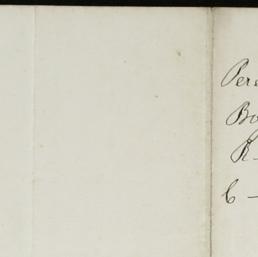 Per
Bo
R
C –